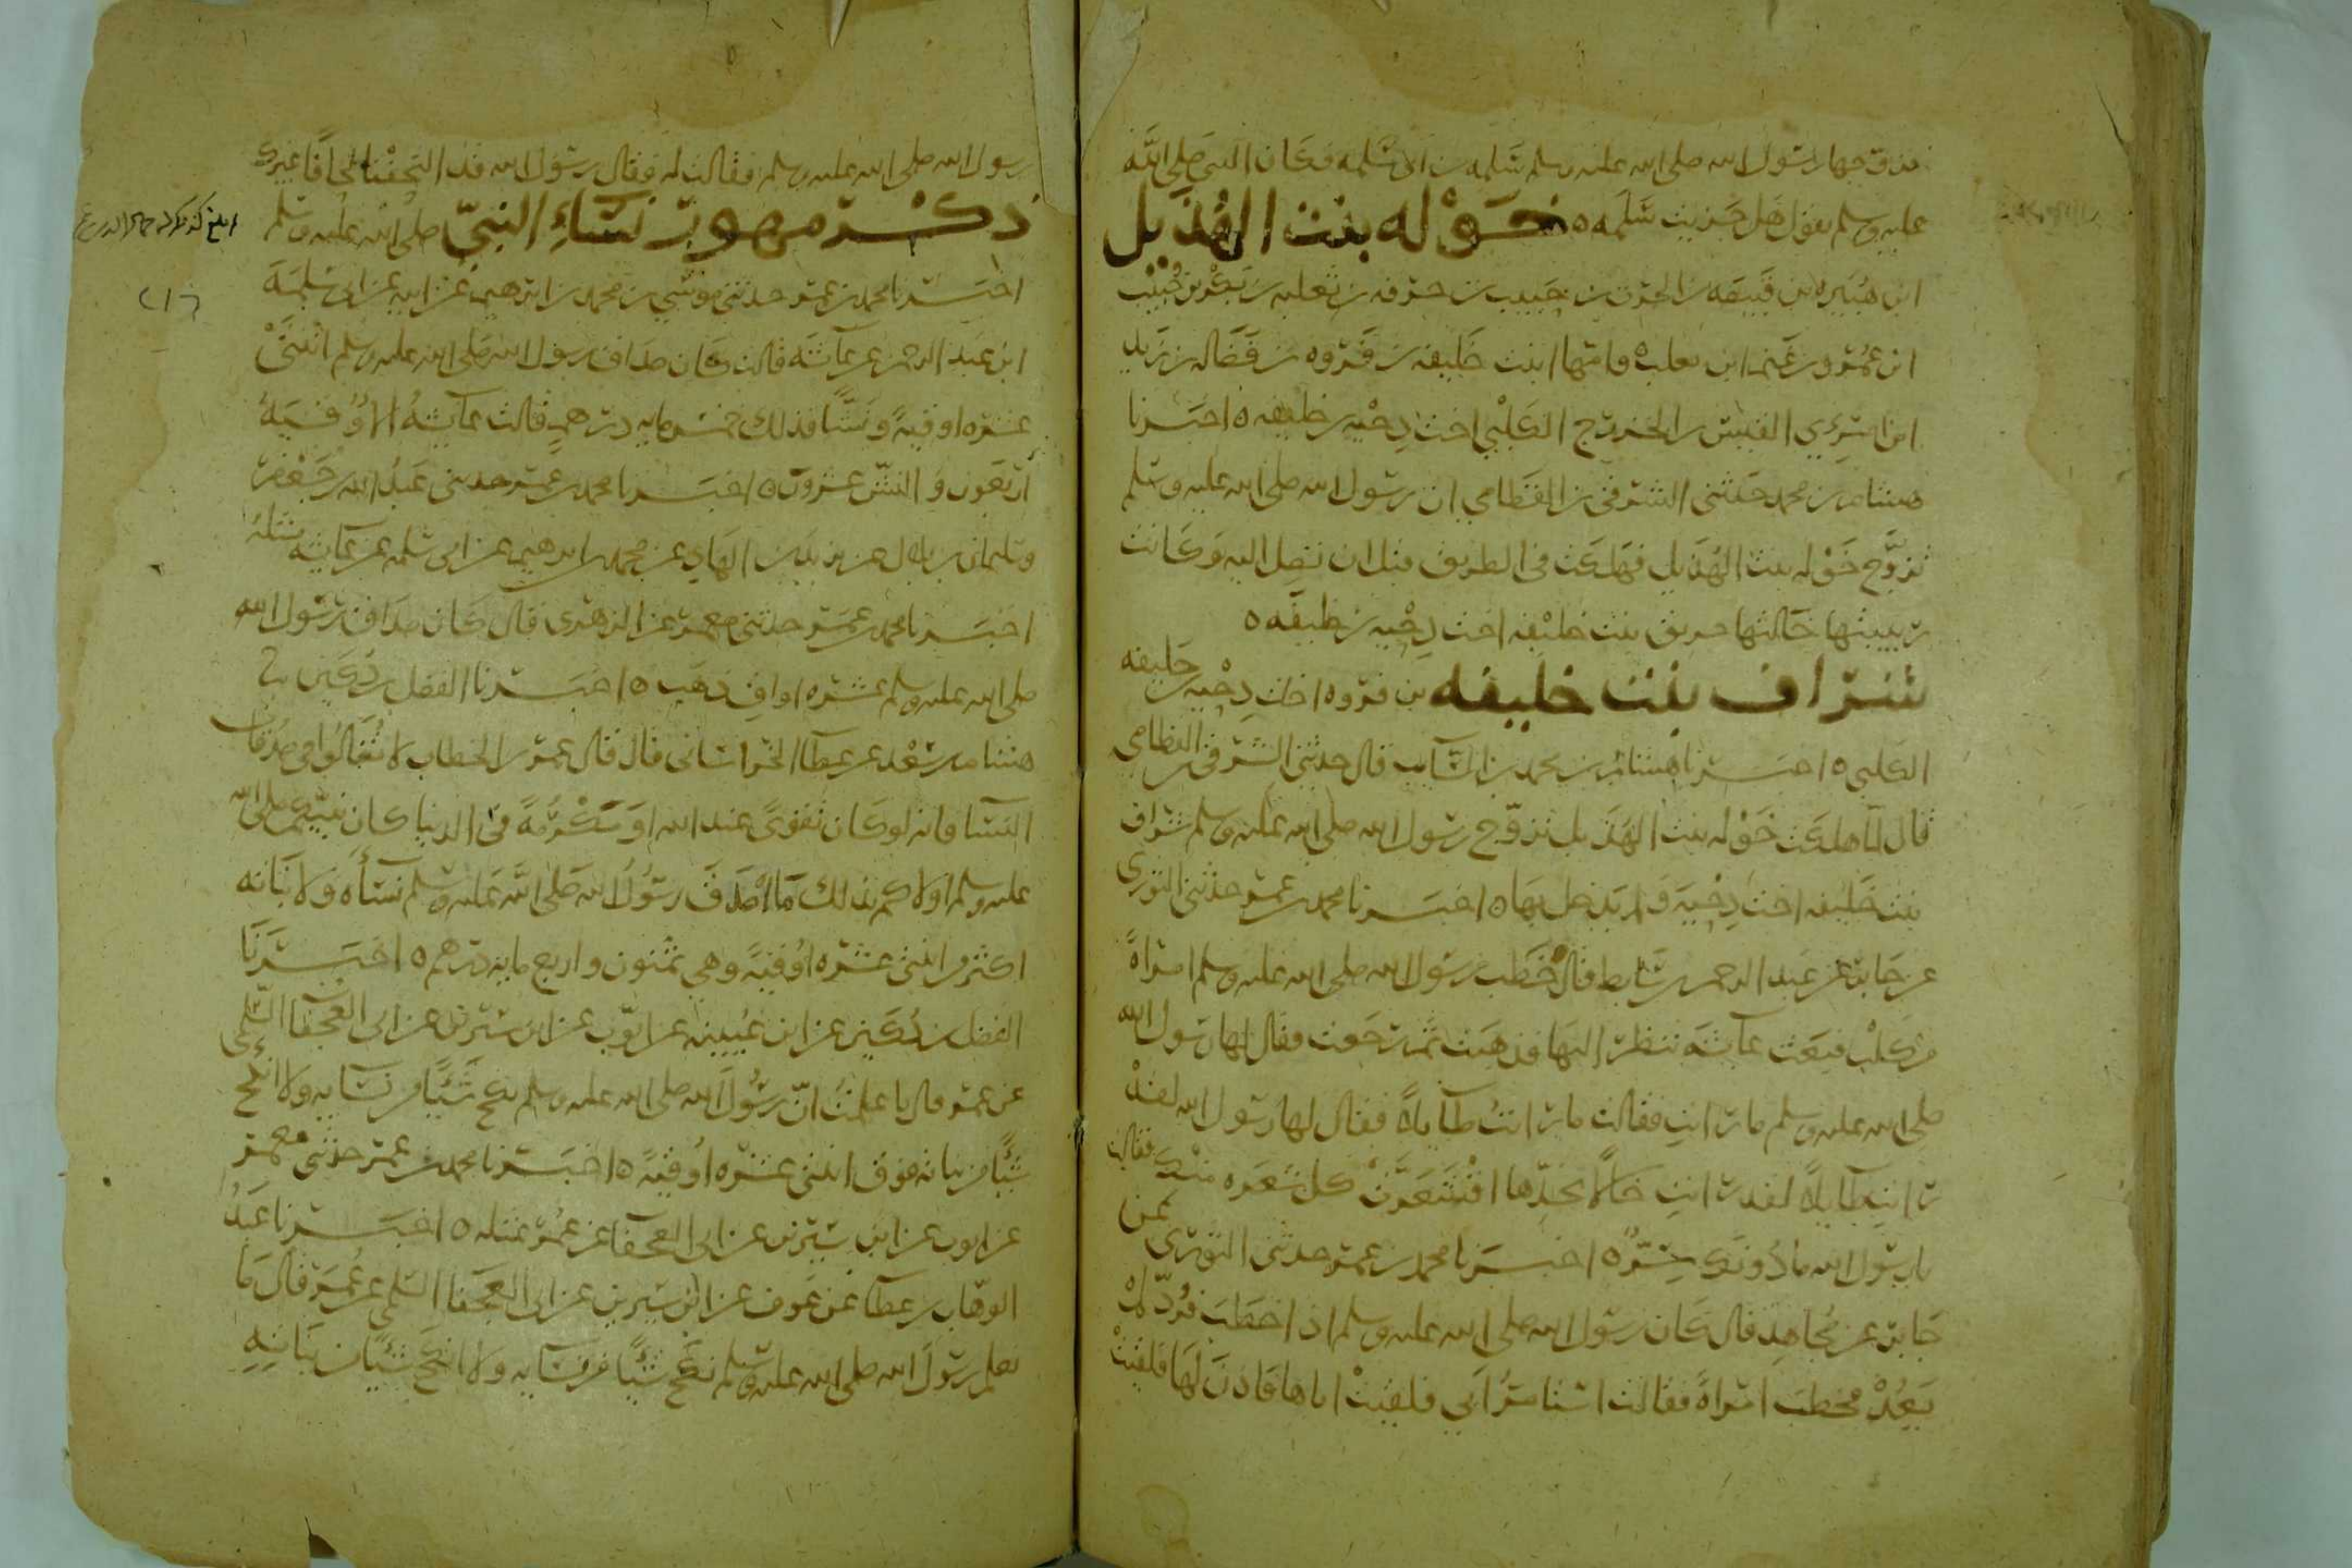 فزوجها رسول الله صلى الله عليه وسلم سلمه بن ابى سلمه فكان النبى صلى الله
عليه وسلم يقول هل جزيت سلمه ه خوله بنت الهذيل
ابن هبيره بن قبيصه بن الحرث بن حبيب بن حرفه بن ثعلبه بن بكر بن حبيب
ابن عمرو بن غنم ابن تغلب ه وامها ابنت خليفه بن فروه بن فضاله بن زيد
ابن امرئ القيس بن الخزرج الكلبي اخت دحيه بن خليفه ه اخبرنا
هشام بن محمد حدثنى الشرقى بن القطامي ان رسول الله صلى الله عليه وسلم
تزوج خوله بنت الهذيل فهلكت فى الطريق قبل ان تصل اليه وكانت
ربيبتها خالتها خرنق بنت خليفه اخت دحيه بن خليفه ه
شراف بنت خليفه بن فروه اخت دحيه بن خليفه
الكلبي ه اخبرنا هشام بن محمد بن السايب قال حدثنى الشرقى بن القطامي
قال لما هلكت خوله بنت الهذيل تزوج رسول الله صلى الله عليه وسلم شراف
بنت خليفه اخت دحيه ولم يدخل بها ه اخبرنا محمد بن عمر حدثنى الثورى
عن جابر عن عبد الرحمن بن سابط قال خطب رسول الله صلى الله عليه وسلم امراة
من كلب فبعث عايشه تنظر اليها فذهبت ثم رجعت فقال لها رسول الله
صلى الله عليه وسلم ما رايت فقالت ما رايت طايلا فقال لها رسول الله لقد
رايت طايلا لقد رايت خالا بخدها اقشعرت كل شعره منك فقالت
يا رسول الله ما دونك سر ه اخبرنا محمد بن عمر حدثنى الثورى عن
جابر عن مجاهد قال كان رسول الله صلى الله عليه وسلم اذا خطب فرد لم
يعد فخطب امراة فقالت استامر ابي فلقيت اباها فاذن لها فلقيت
رسول الله صلى الله عليه وسلم فقالت له فقال رسول الله قد التحفنا لحافا غيرك
ذكر مهور نساء النبي صلى الله عليه وسلم
اخبرنا محمد بن عمر حدثنى موسى بن محمد بن ابرهيم عن ابيه عن ابى سلمة
ابن عبد الرحمن عن عائشه قالت كان صداق رسول الله صلى الله عليه وسلم اثنتى
عشره اوقية ونشا فذلك خمسمايه درهم قالت عائشة الاوقيه
اربعون والنش عشرون ه اخبرنا محمد بن عمر حدثنى عبد الله بن جعفر
وسليمان بن بلال عن يزيد بن الهاد عن محمد بن ابرهيم عن ابى سلمه عن عائشه مثله
اخبرنا محمد بن عمر حدثنى معمر عن الزهرى قال كان صداق رسول الله
صلى الله عليه وسلم عشره اواقى ذهب ه اخبرنا الفضل بن دكين نا
هشام بن سعد عن عطا الخراسانى قال قال عمر بن الخطاب لا تغالوا فى صدقات
النسا فانه لو كان تقوى عند الله او مكرمة فى الدنيا كان نبيكم صلى الله
عليه وسلم اولاكم بذلك ما اصدق رسول الله صلى الله عليه وسلم نساه ولا بناته
اكثر من اثنتى عشره اوقية وهي ثمنون واربع مايه درهم ه اخبرنا
الفضل بن دكين عن ابن عيينه عن ايوب عن ابن سيرين عن ابى العجفا السلمى
عن عمر قال ما علمت ان رسول الله صلى الله عليه وسلم نكح شيئا من نسايه ولا انكح
شيئا من بناته فوق اثنتى عشره اوقية ه اخبرنا محمد بن عمر حدثنى معمر
عن ايوب عن ابن سيرين عن ابى العجفا عن عمر بمثله ه اخبرنا عبد
الوهاب بن عطا عن عوف عن ابن سيرين عن ابى العجفا السلمى عن عمر قال ما
نعلم رسول الله صلى الله عليه وسلم نكح شيئا من نسايه ولا انكح شيئا من بناته